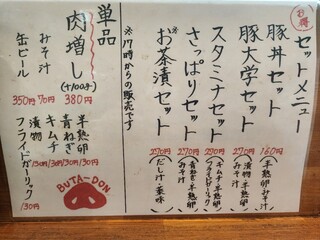 お得
セットメニュー
豚丼セット 160円(半熟卵・みそ汁)
豚大学セット 270円(漬物・半熟卵・みそ汁)
スタミナセット 230円(キムチ・半熟卵・フライドガーリック)
さっぱりセット 270円(青ねぎ・半熟卵・みそ汁)
※お茶漬けセット 290円(だし汁・薬味)
※17時からの販売です
単品
肉増し(+100g) 380円
みそ汁 70円
缶ビール 350円
半熟卵
青ねぎ
キムチ 130円
漬物 130円
フライドガーリック 130円
BUTA-DON